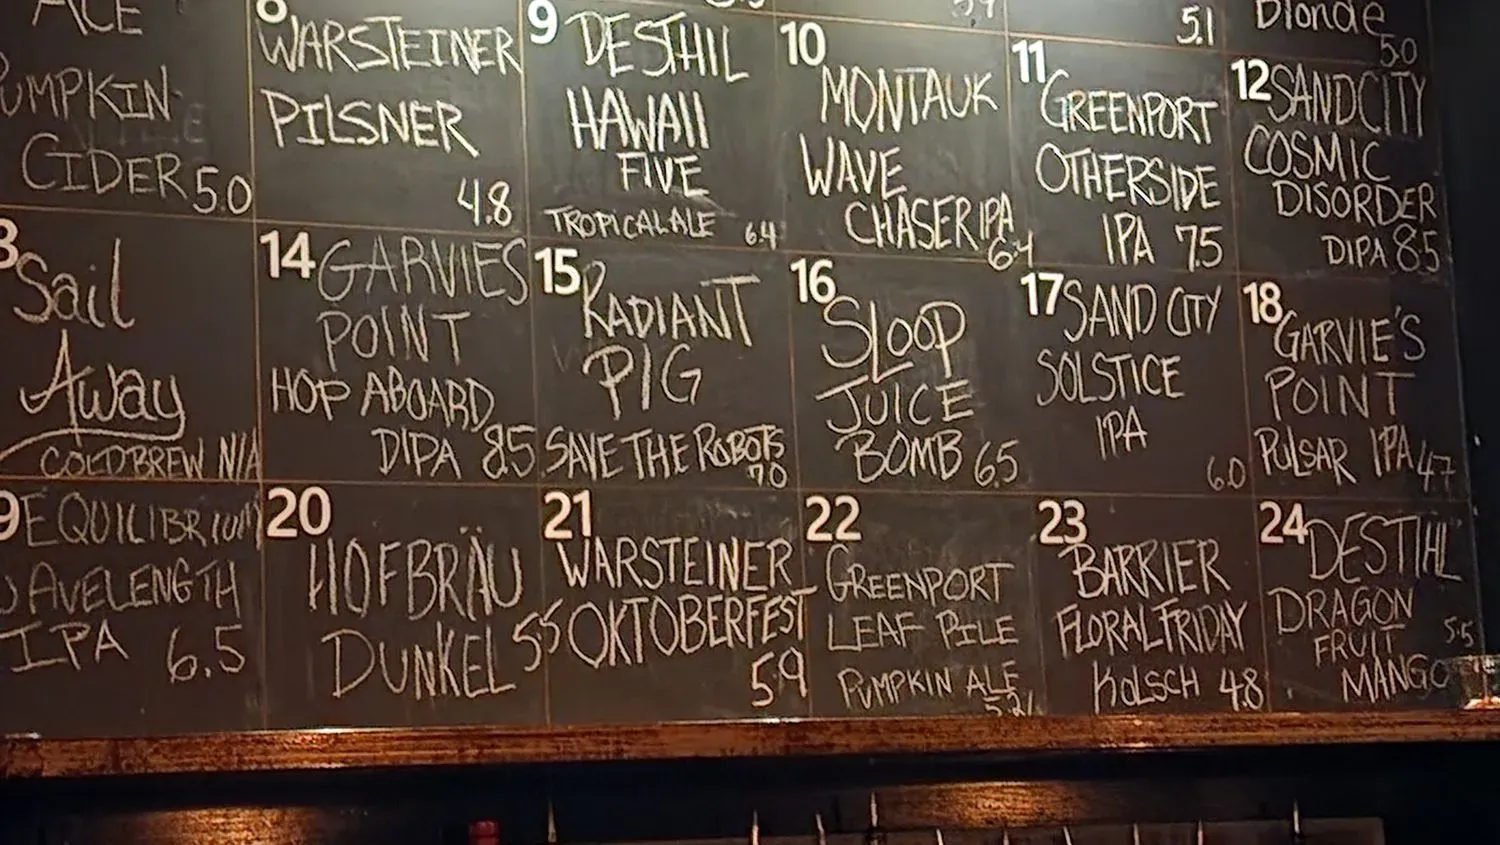 ACE
PUMPKIN
CIDER 5.0
8
WARSTEINER
PILSNER
4.8
9
DESTHIL
HAWAII
FIVE
TROPICAL ALE 6.4
10
MONTAUK
WAVE
CHASER IPA
6.4
5.1
11
GREENPORT
OTHERSIDE
IPA 7.5
Blonde
5.0
12 SANDCITY
COSMIC
DISORDER
DIPA 8.5
Sail
Away
COLDBREW N/A
14 GARVIES
POINT
HOP ABOARD
DIPA 8.5
15 RADIANT
PIG
SAVE THE ROBOTS
7.0
16
SLOOP
JUICE
BOMB 6.5
17 SAND CITY
SOLSTICE
IPA
6.0
18
GARVIE'S
POINT
PULSAR IPA 4.7
EQUILIBRIUM
WAVELENGTH
IPA 6.5
20
HOFBRÄU
DUNKEL 5.5
21
WARSTEINER
OKTOBERFEST
5.9
22
GREENPORT
LEAF PILE
PUMPKIN ALE
23
BARRIER
FLORAL FRIDAY
KOLSCH 4.8
24 DESTIHL
DRAGON
FRUIT 5.5
MANGO